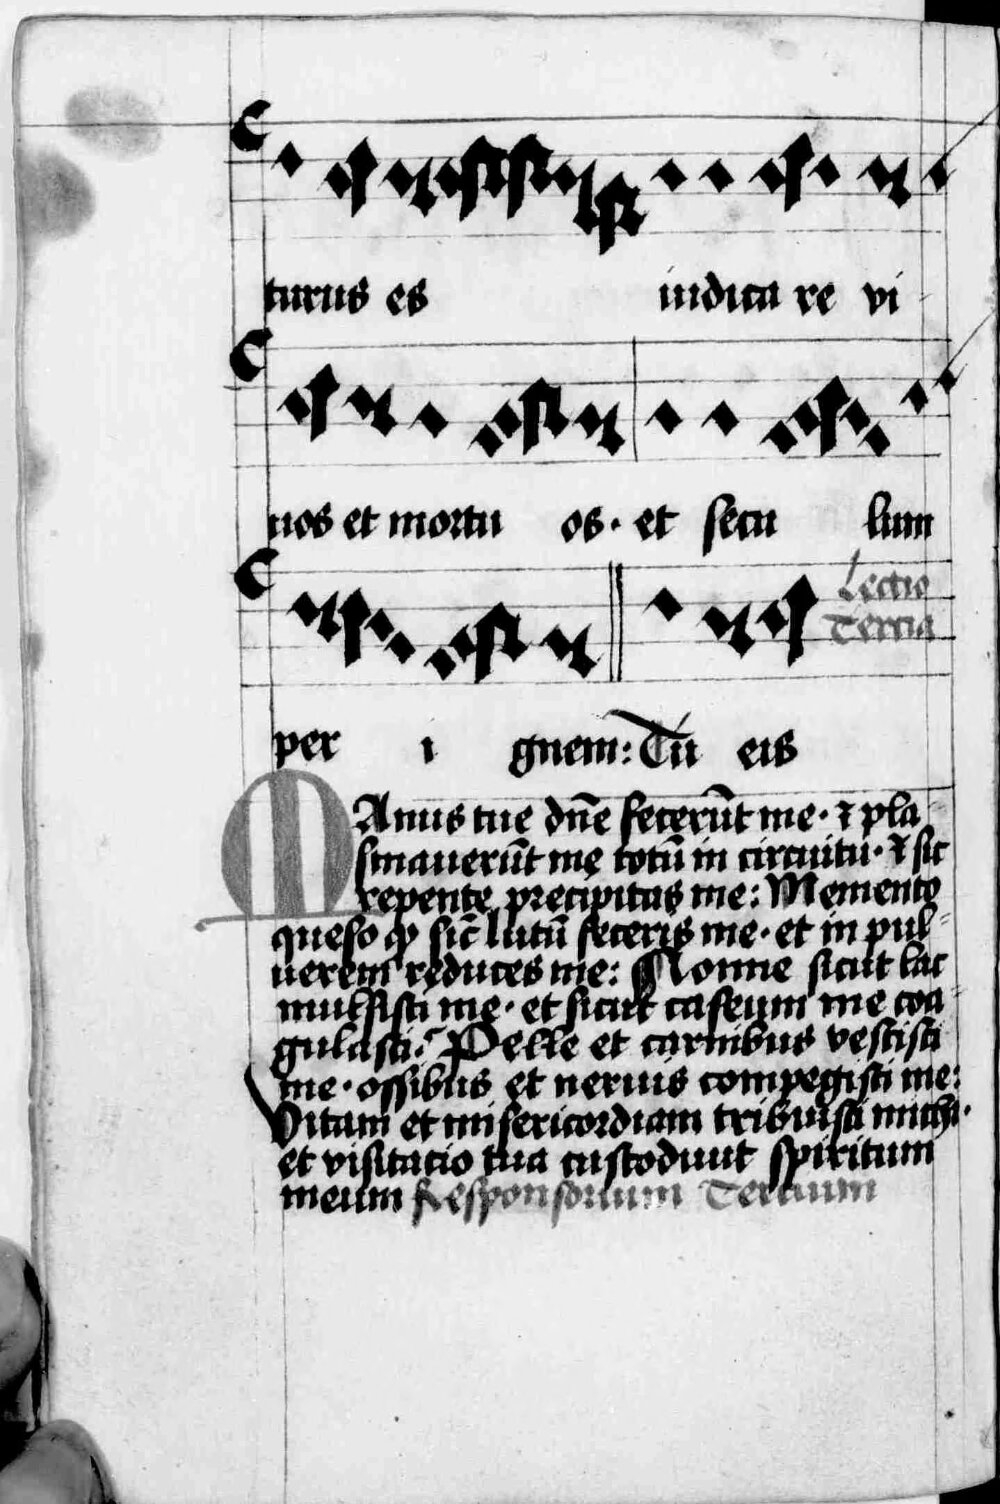 turus es iudica re vi
uos et mortu os. et secu lum
Lectio
Tercia
per i gnem: Tu eis
Manus tue dn̄e fecerūt me. ⁊ pla
smauerūt me totū in circuitu. ⁊ sic
repente precipitas me: Memento
queso ꝙ sic̄ lutū feceris me. et in pul-
uerem reduces me: Nonne sicut lac
mulsisti me. et sicut caseum me coa
gulasti: Pelle et carnibus vestisti
me. ossibus et neruis compegisti me:
Vitam et misericordiam tribuisti michi.
et visitacio tua custodiuit spiritum
meum Responsorium Tercium